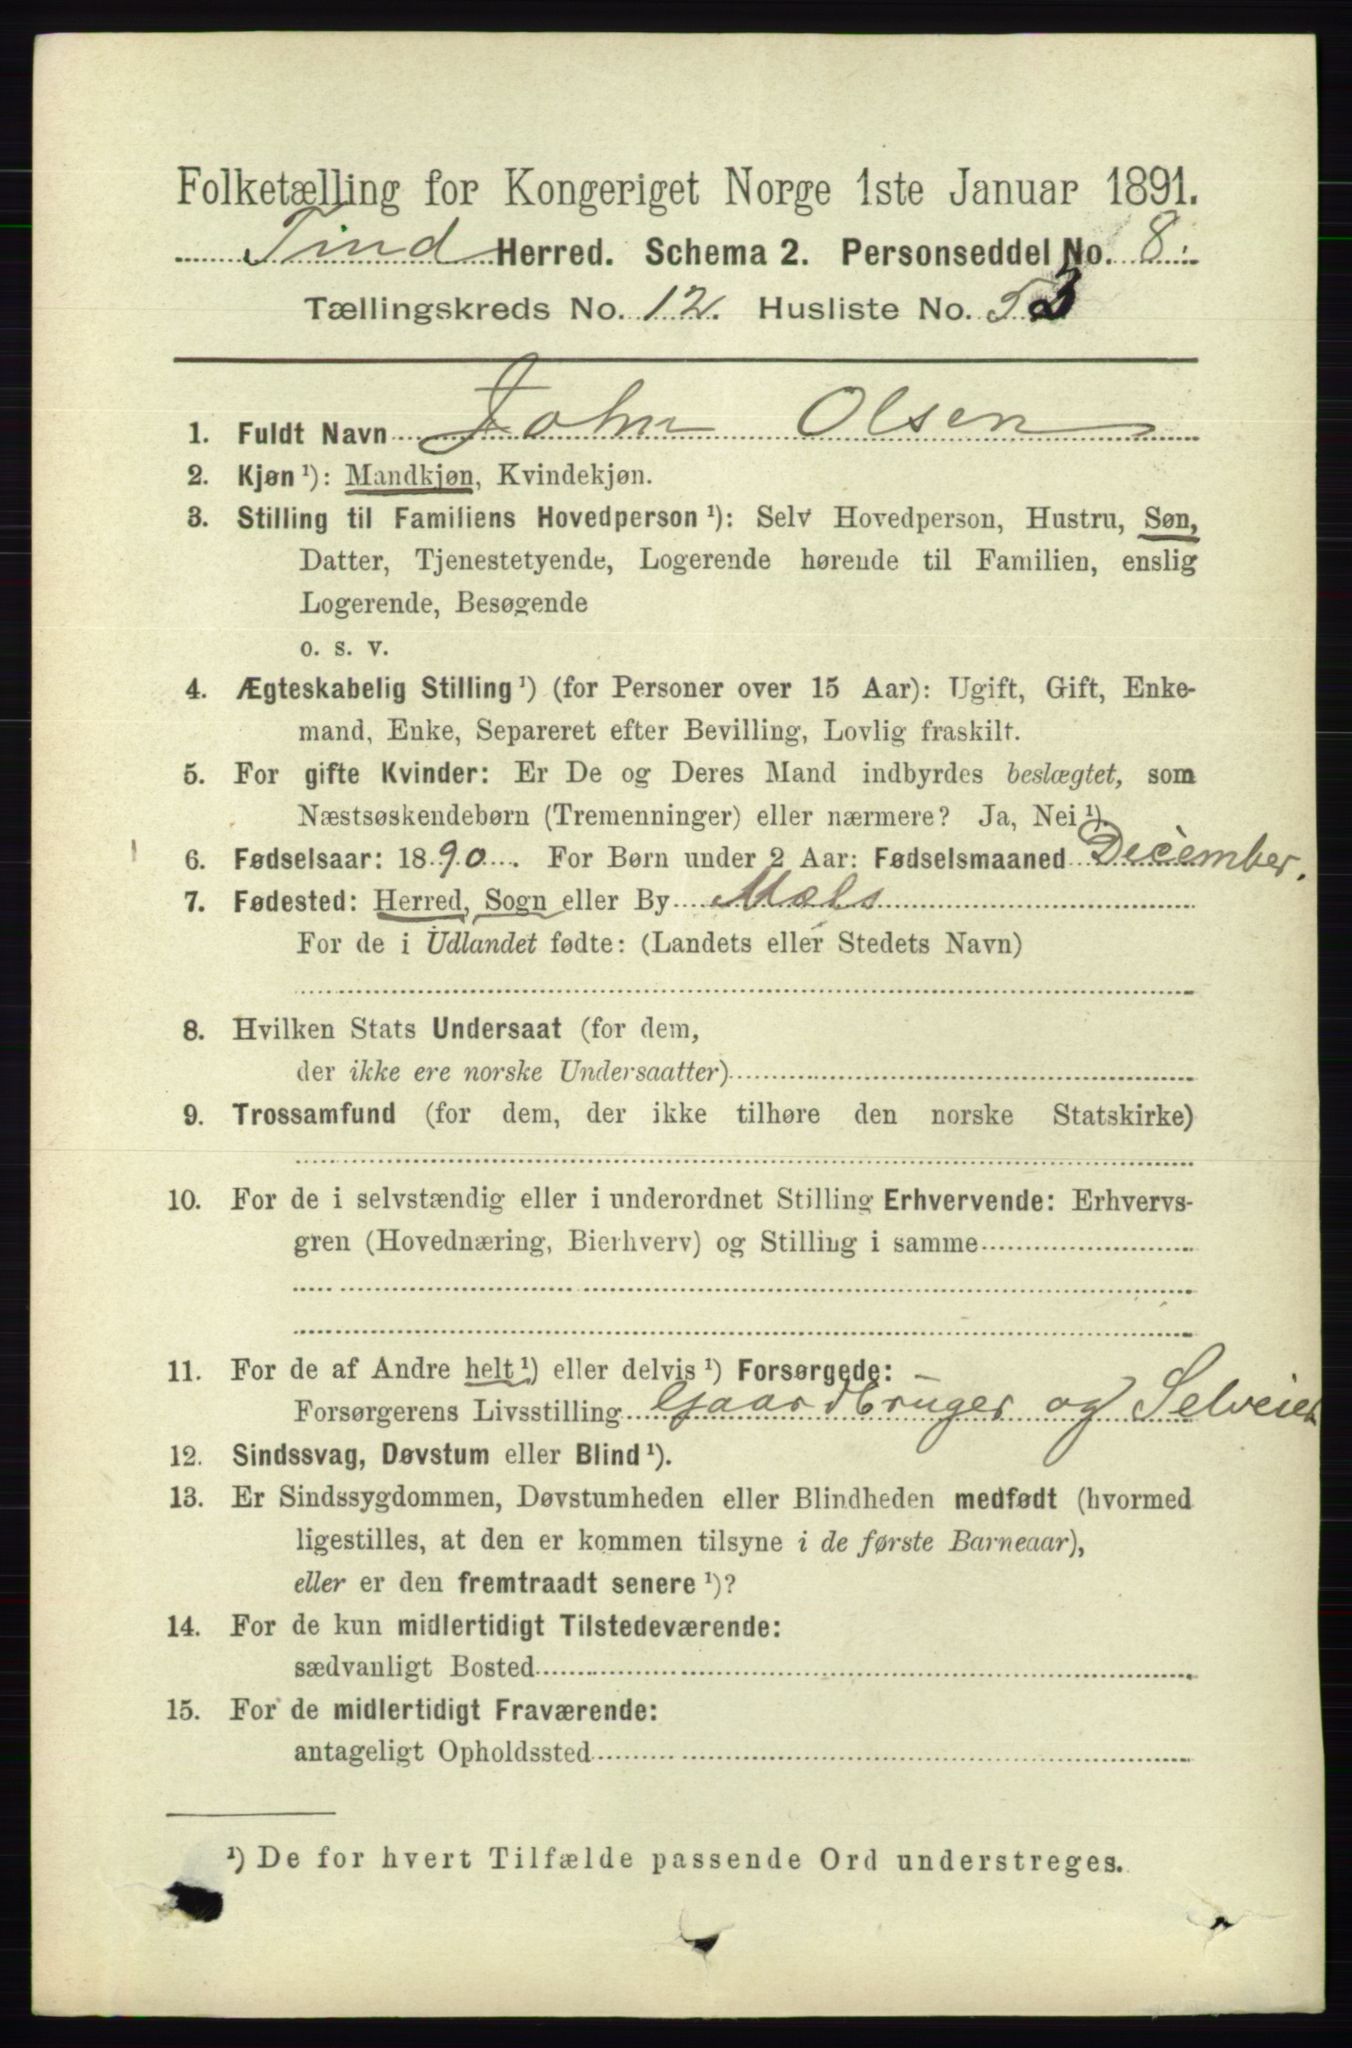 Folketælling for Kongeriget Norge 1ste Januar 1891.
Tind Herred. Schema 2. Personseddel No. 8.
Tællingskreds No. 12. Husliste No. 53
1. Fuldt Navn John Olsen
2. Kjøn ¹): Mandkjøn, Kvindekjøn.
3. Stilling til Familiens Hovedperson ¹): Selv Hovedperson, Hustru, Søn,
Datter, Tjenestetyende, Logerende hørende til Familien, enslig
Logerende, Besøgende
o. s. v.
4. Ægteskabelig Stilling ¹) (for Personer over 15 Aar): Ugift, Gift, Enke-
mand, Enke, Separeret efter Bevilling, Lovlig fraskilt.
5. For gifte Kvinder: Er De og Deres Mand indbyrdes beslægtet, som
Næstsøskendebørn (Tremenninger) eller nærmere? Ja, Nei ¹).
6. Fødselsaar: 1890. For Børn under 2 Aar: Fødselsmaaned December.
7. Fødested: Herred, Sogn eller By Mæls
For de i Udlandet fødte: (Landets eller Stedets Navn)
8. Hvilken Stats Undersaat (for dem,
der ikke ere norske Undersaatter)
9. Trossamfund (for dem, der ikke tilhøre den norske Statskirke)
10. For de i selvstændig eller i underordnet Stilling Erhvervende: Erhvervs-
gren (Hovednæring, Bierhverv) og Stilling i samme
11. For de af Andre helt ¹) eller delvis ¹) Forsørgede:
Forsørgerens Livsstilling Gaardbruger og Selveier
12. Sindssvag, Døvstum eller Blind ¹).
13. Er Sindssygdommen, Døvstumheden eller Blindheden medfødt (hvormed
ligestilles, at den er kommen tilsyne i de første Barneaar),
eller er den fremtraadt senere ¹)?
14. For de kun midlertidigt Tilstedeværende:
sædvanligt Bosted
15. For de midlertidigt Fraværende:
antageligt Opholdssted
¹) De for hvert Tilfælde passende Ord understreges.